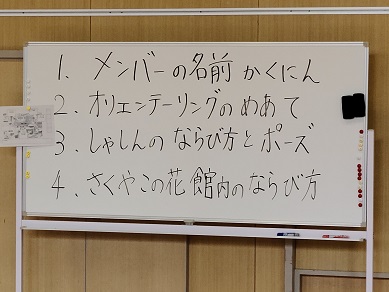 1. メンバーの名前かくにん
2. オリエンテーリングのめあて
3. しゃしんのならび方とポーズ
4. さくやこの花館内のならび方